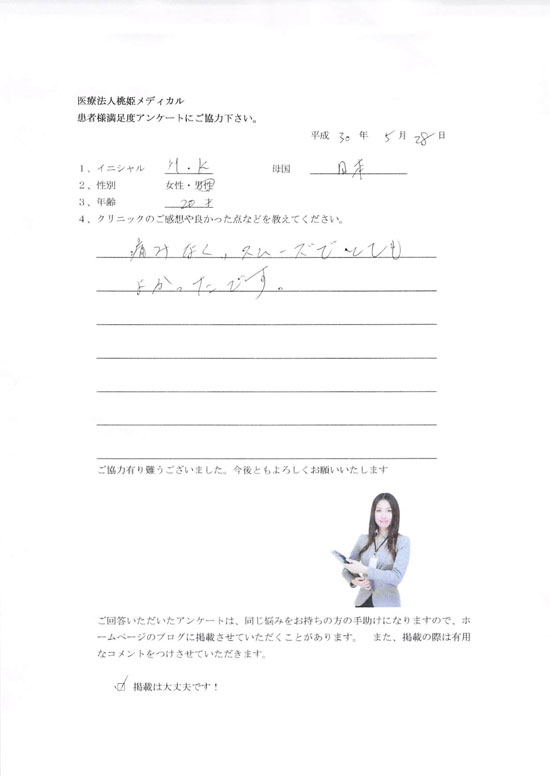 医療法人桃姫メディカル
患者様満足度アンケートにご協力下さい。
平成 30 年 5 月 28 日
1、イニシャル H・K 母国 日本
2、性別 女性・男性
3、年齢 20才
4、クリニックのご感想や良かった点などを教えてください。
痛みなく、スムーズでとても
よかったです。
ご協力有り難うございました。今後ともよろしくお願いいたします
ご回答いただいたアンケートは、同じ悩みをお持ちの方の手助けになりますので、ホ
ームページのブログに掲載させていただくことがあります。 また、掲載の際は有用
なコメントをつけさせていただきます。
☑ 掲載は大丈夫です！